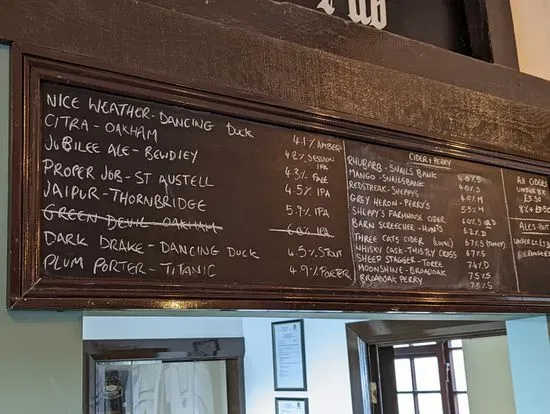 Pub
NICE WEATHER - DANCING DUCK 4.1% AMBER
CITRA - OAKHAM 4.2% SESSION IPA
JUBILEE ALE - BEWDLEY 4.3% PALE
PROPER JOB - ST AUSTELL 4.5% IPA
JAIPUR - THORNBRIDGE 5.9% IPA
GREEN DEVIL - OAKHAM 6.0% IPA
DARK DRAKE - DANCING DUCK 4.5% STOUT
PLUM PORTER - TITANIC 4.9% PORTER
CIDER + PERRY
RHUBARB - SNAILS BANK 4.0% S
MANGO - SNAILSBANK 4.0% S
REDSTREAK - SHEPPYS 4.0% M
GREY HERON - PERRY'S 5.5% M
SHEPPY'S FARMHOUSE CIDER 6.0%
BARN SCREECHER - HUNTS 6.2% D
THREE CATS CIDER (LOCAL) 6.7% S
WHISKY CASK - THISTLY CROSS 6.7% S
SHEEP STAGGER - TORRE 7.4% D
MOONSHINE - BROADOAK 7.5% S
BROADOAK PERRY 7.5% S
All CIDERS
UNDER 8%
£3.30
ALES - PINT